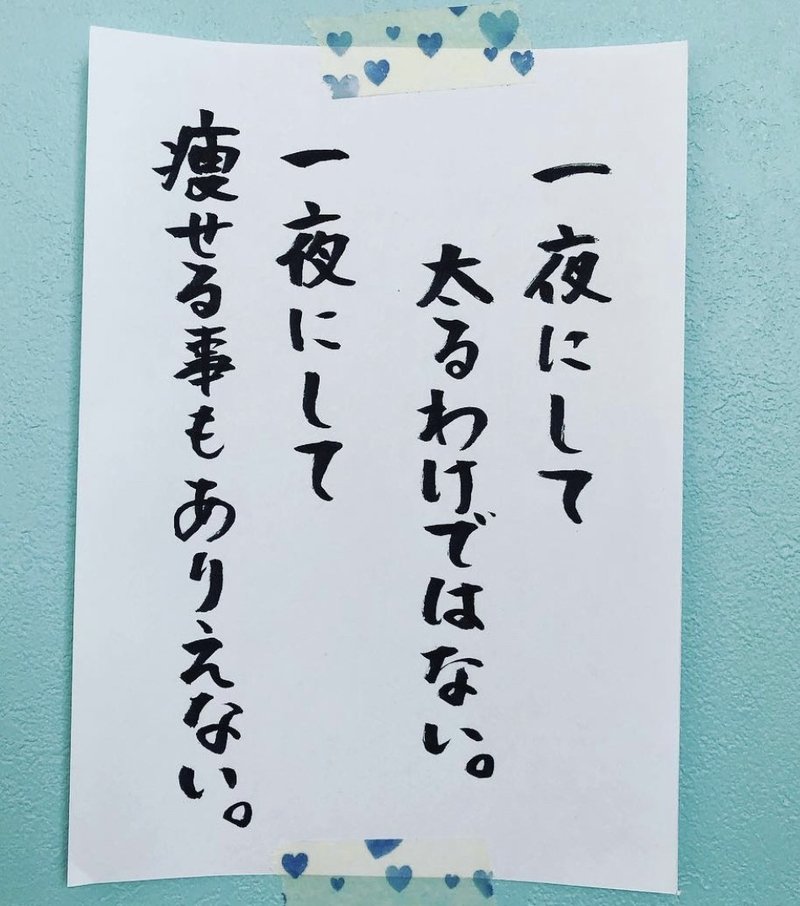 一夜にして
太るわけではない。
一夜にして
痩せる事もありえない。